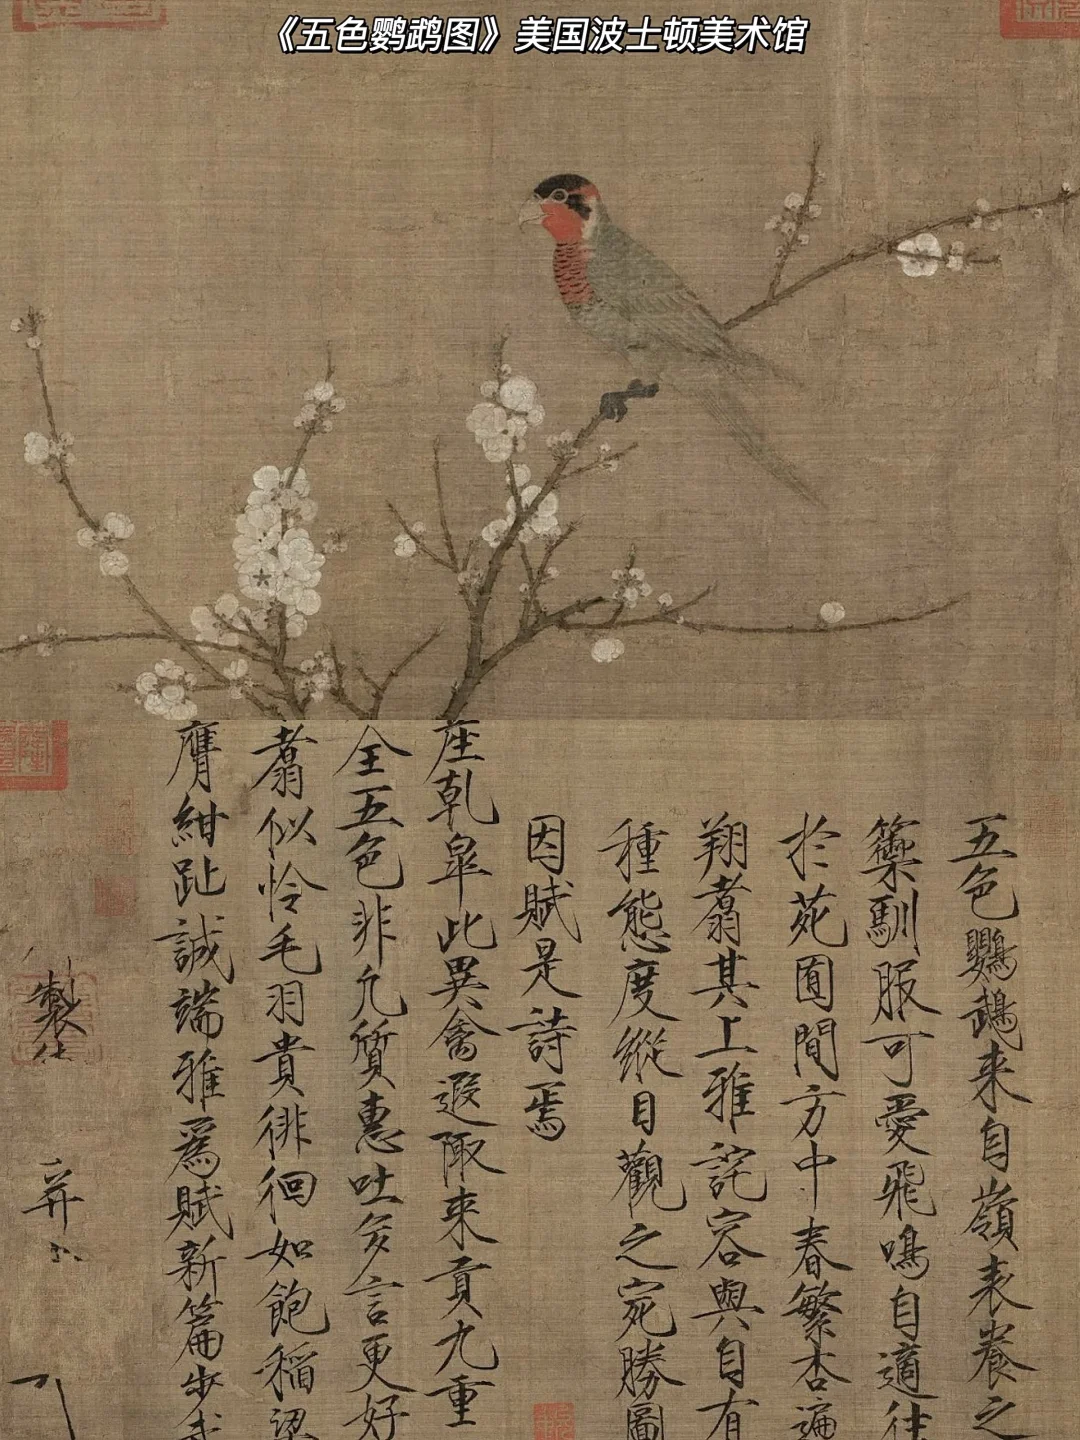 《五色鹦鹉图》美国波士顿美术馆
五色鸚鵡来自嶺表養之
籞馴服可愛飛鳴自適往
於苑囿間方中春繁杏遍
翔翥其上雅詫容與自有
種態度縱目觀之宛勝圖
因賦是詩焉
産乾皐此異禽遐陬来貢九重
全五色非凡質惠吐多言更好
翥似怜毛羽貴徘徊如飽稻粱
膺紺趾誠端雅爲賦新篇步武
製
并